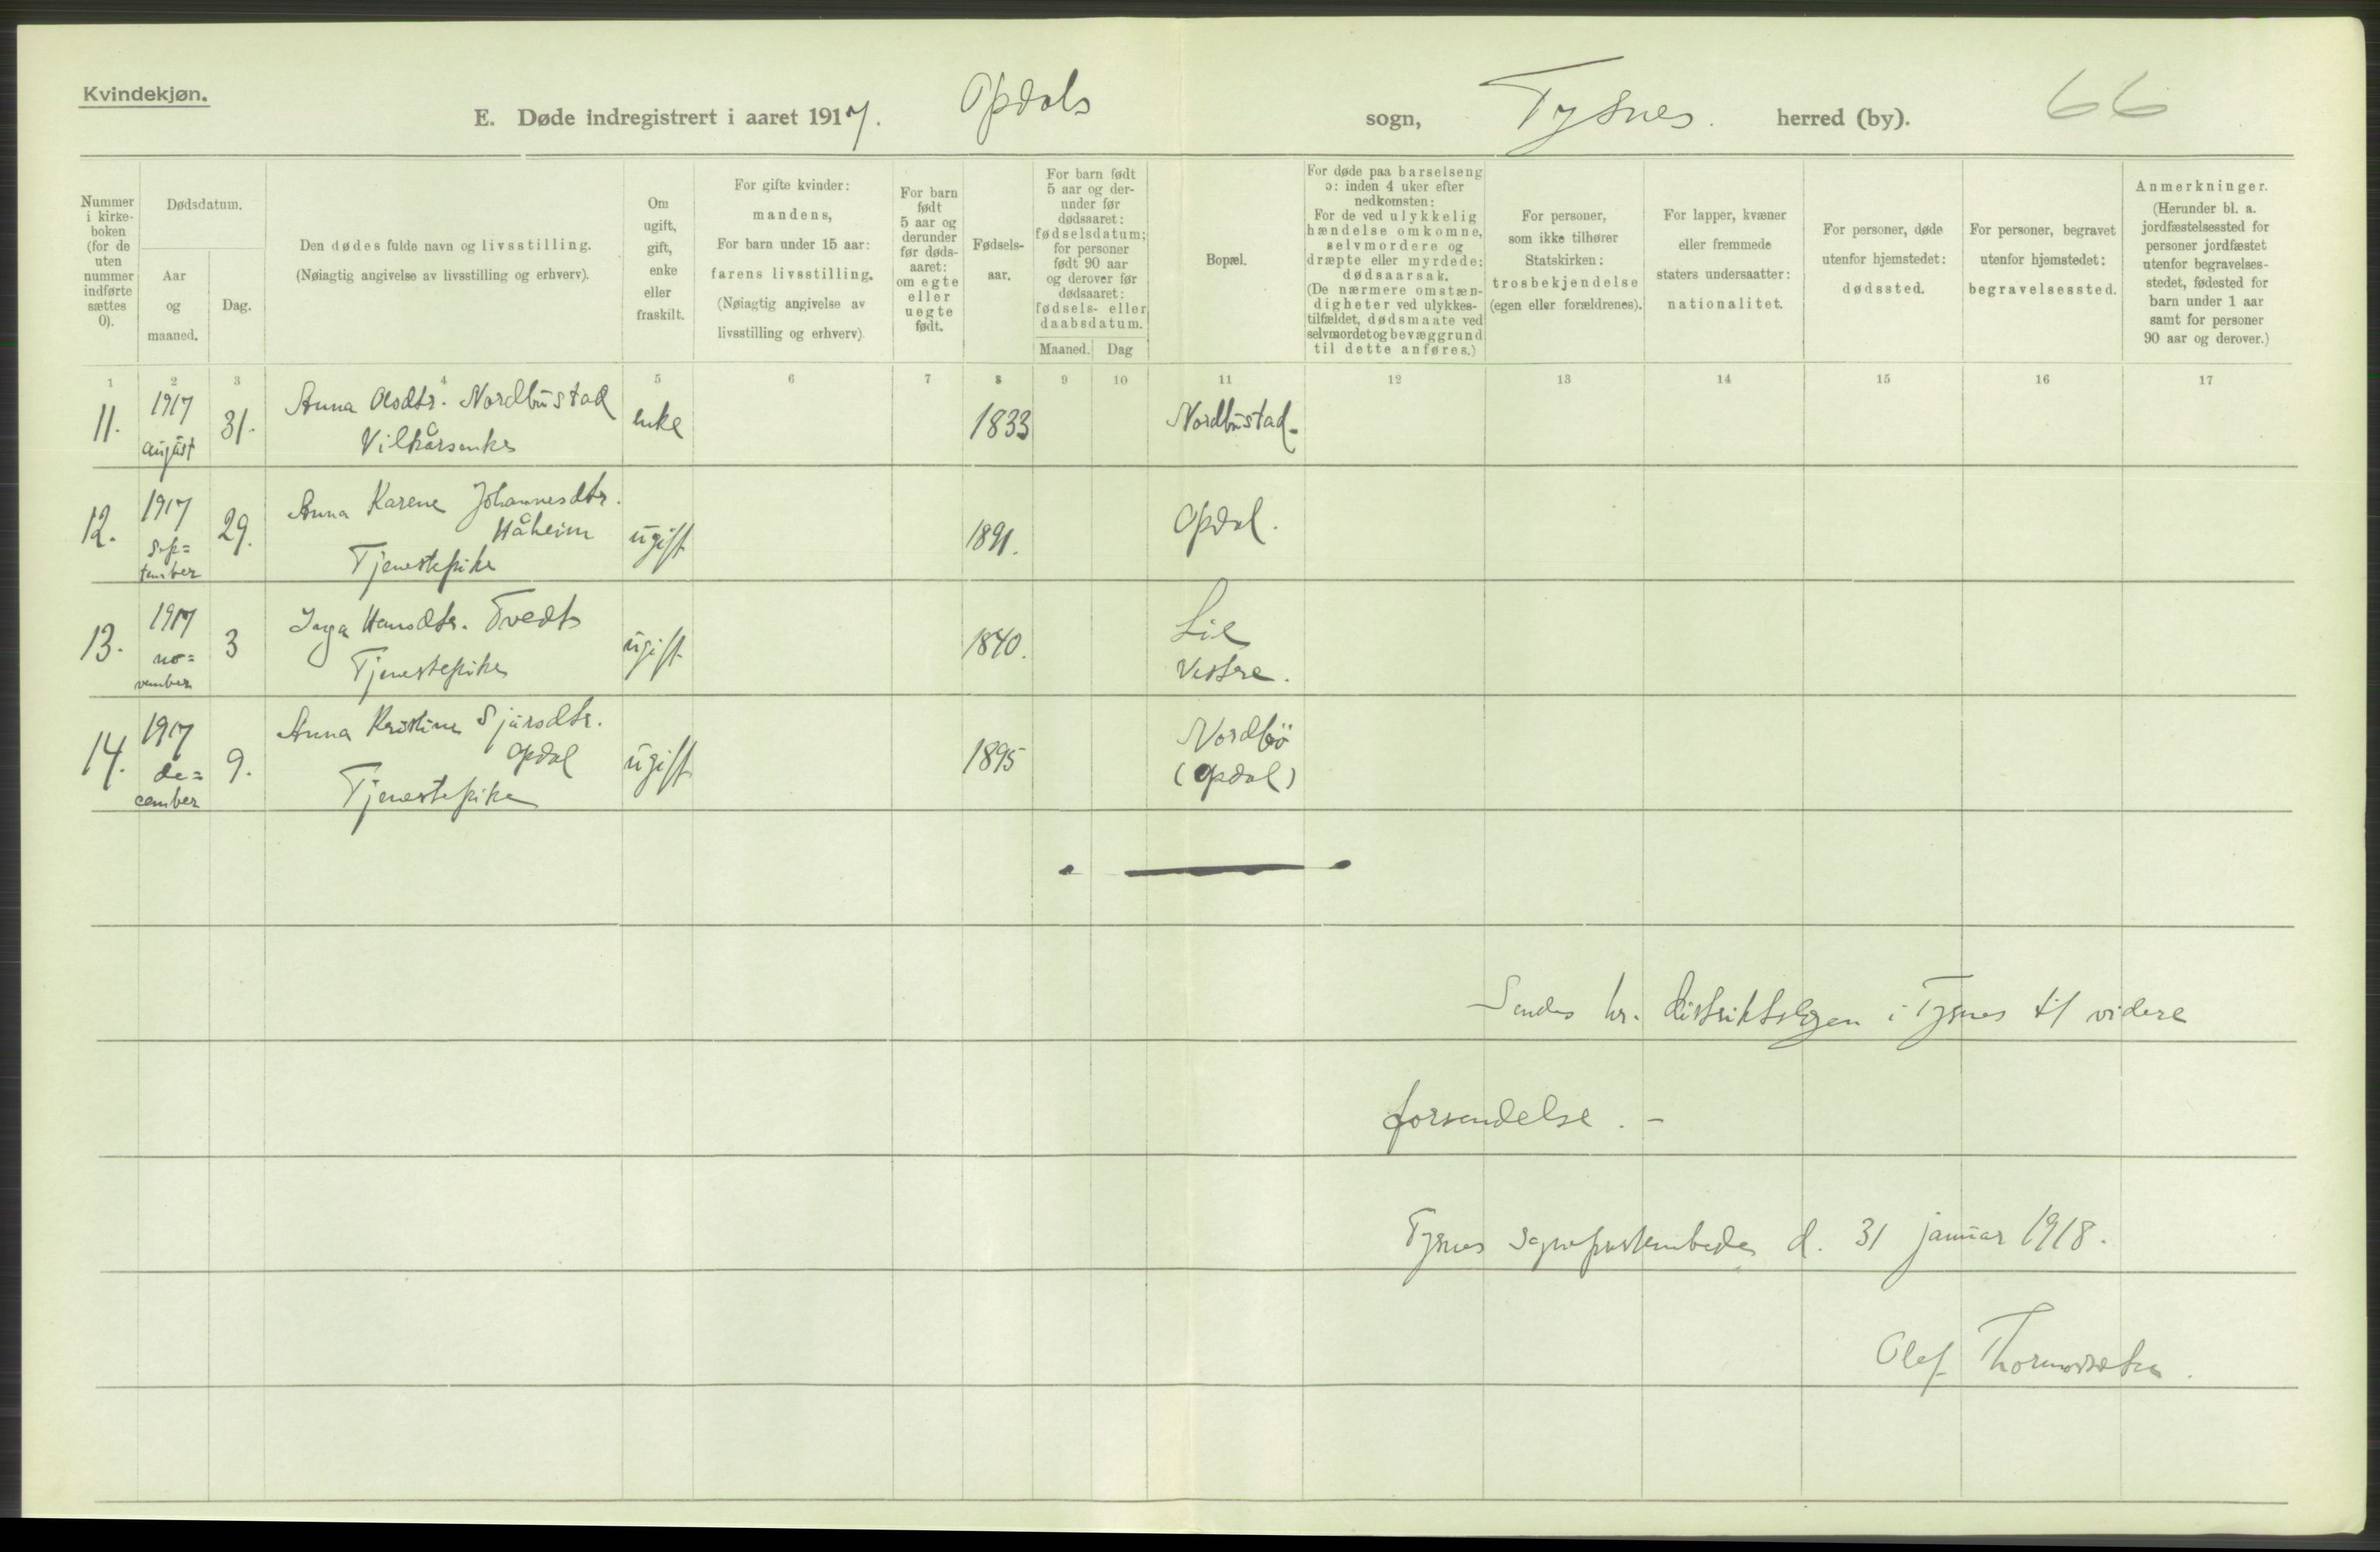 Kvindekjøn.
E. Døde indregistrert i aaret 1917. Opdals sogn, Tysnes. herred (by). 66
Nummer i kirkeboken (for de uten nummer indførte sættes 0).
Dødsdatum.
Aar og maaned.
Dag.
Den dødes fulde navn og livsstilling.
(Nøiagtig angivelse av livsstilling og erhverv).
Om ugift, gift, enke eller fraskilt.
For gifte kvinder: mandens,
For barn under 15 aar: farens livsstilling.
(Nøiagtig angivelse av livsstilling og erhverv).
For barn født 5 aar og derunder før dødsaaret: om egte eller uegte født.
Fødselsaar.
For barn født 5 aar og derunder før dødsaaret: fødselsdatum; for personer født 90 aar og derover før dødsaaret: fødsels- eller daabsdatum.
Maaned. Dag
Bopæl.
For døde paa barselseng ɔ: inden 4 uker efter nedkomsten:
For de ved ulykkelig hændelse omkomne, selvmordere og dræpte eller myrdede: dødsaarsak.
(De nærmere omstændigheter ved ulykkestilfældet, dødsmaate ved selvmordet og bevæggrund til dette anføres.)
For personer, som ikke tilhører Statskirken: trosbekjendelse (egen eller forældrenes).
For lapper, kvæner eller fremmede staters undersaatter: nationalitet.
For personer, døde utenfor hjemstedet: dødssted.
For personer, begravet utenfor hjemstedet: begravelsessted.
Anmerkninger.
(Herunder bl. a. jordfæstelsessted for personer jordfæstet utenfor begravelsesstedet, fødested for barn under 1 aar samt for personer 90 aar og derover.)
1 2 3 4 5 6 7 8 9 10 11 12 13 14 15 16 17
11. 1917 august 31. Anna Olsdtr. Nordbustad enke 1833 Nordbustad
Vilkårsenke
12. 1917 sep= tember 29. Anna Karene Johannesdtr. Håheim ugift 1891. Opdal.
Tjenestepike
13. 1917 no= vember 3 Inga Hansdtr. Tvedt ugift 1840. Lie Vestre.
Tjenestepike
14. 1917 de= cember 9. Anna Kristine Sjursdtr. Opdal ugift 1895 Nordbö (Opdal)
Tjenestepike
Sendes hr. distriktslægen i Tysnes til videre
forsendelse. -
Tysnes sogneprestembede d. 31 januar 1918.
Olaf